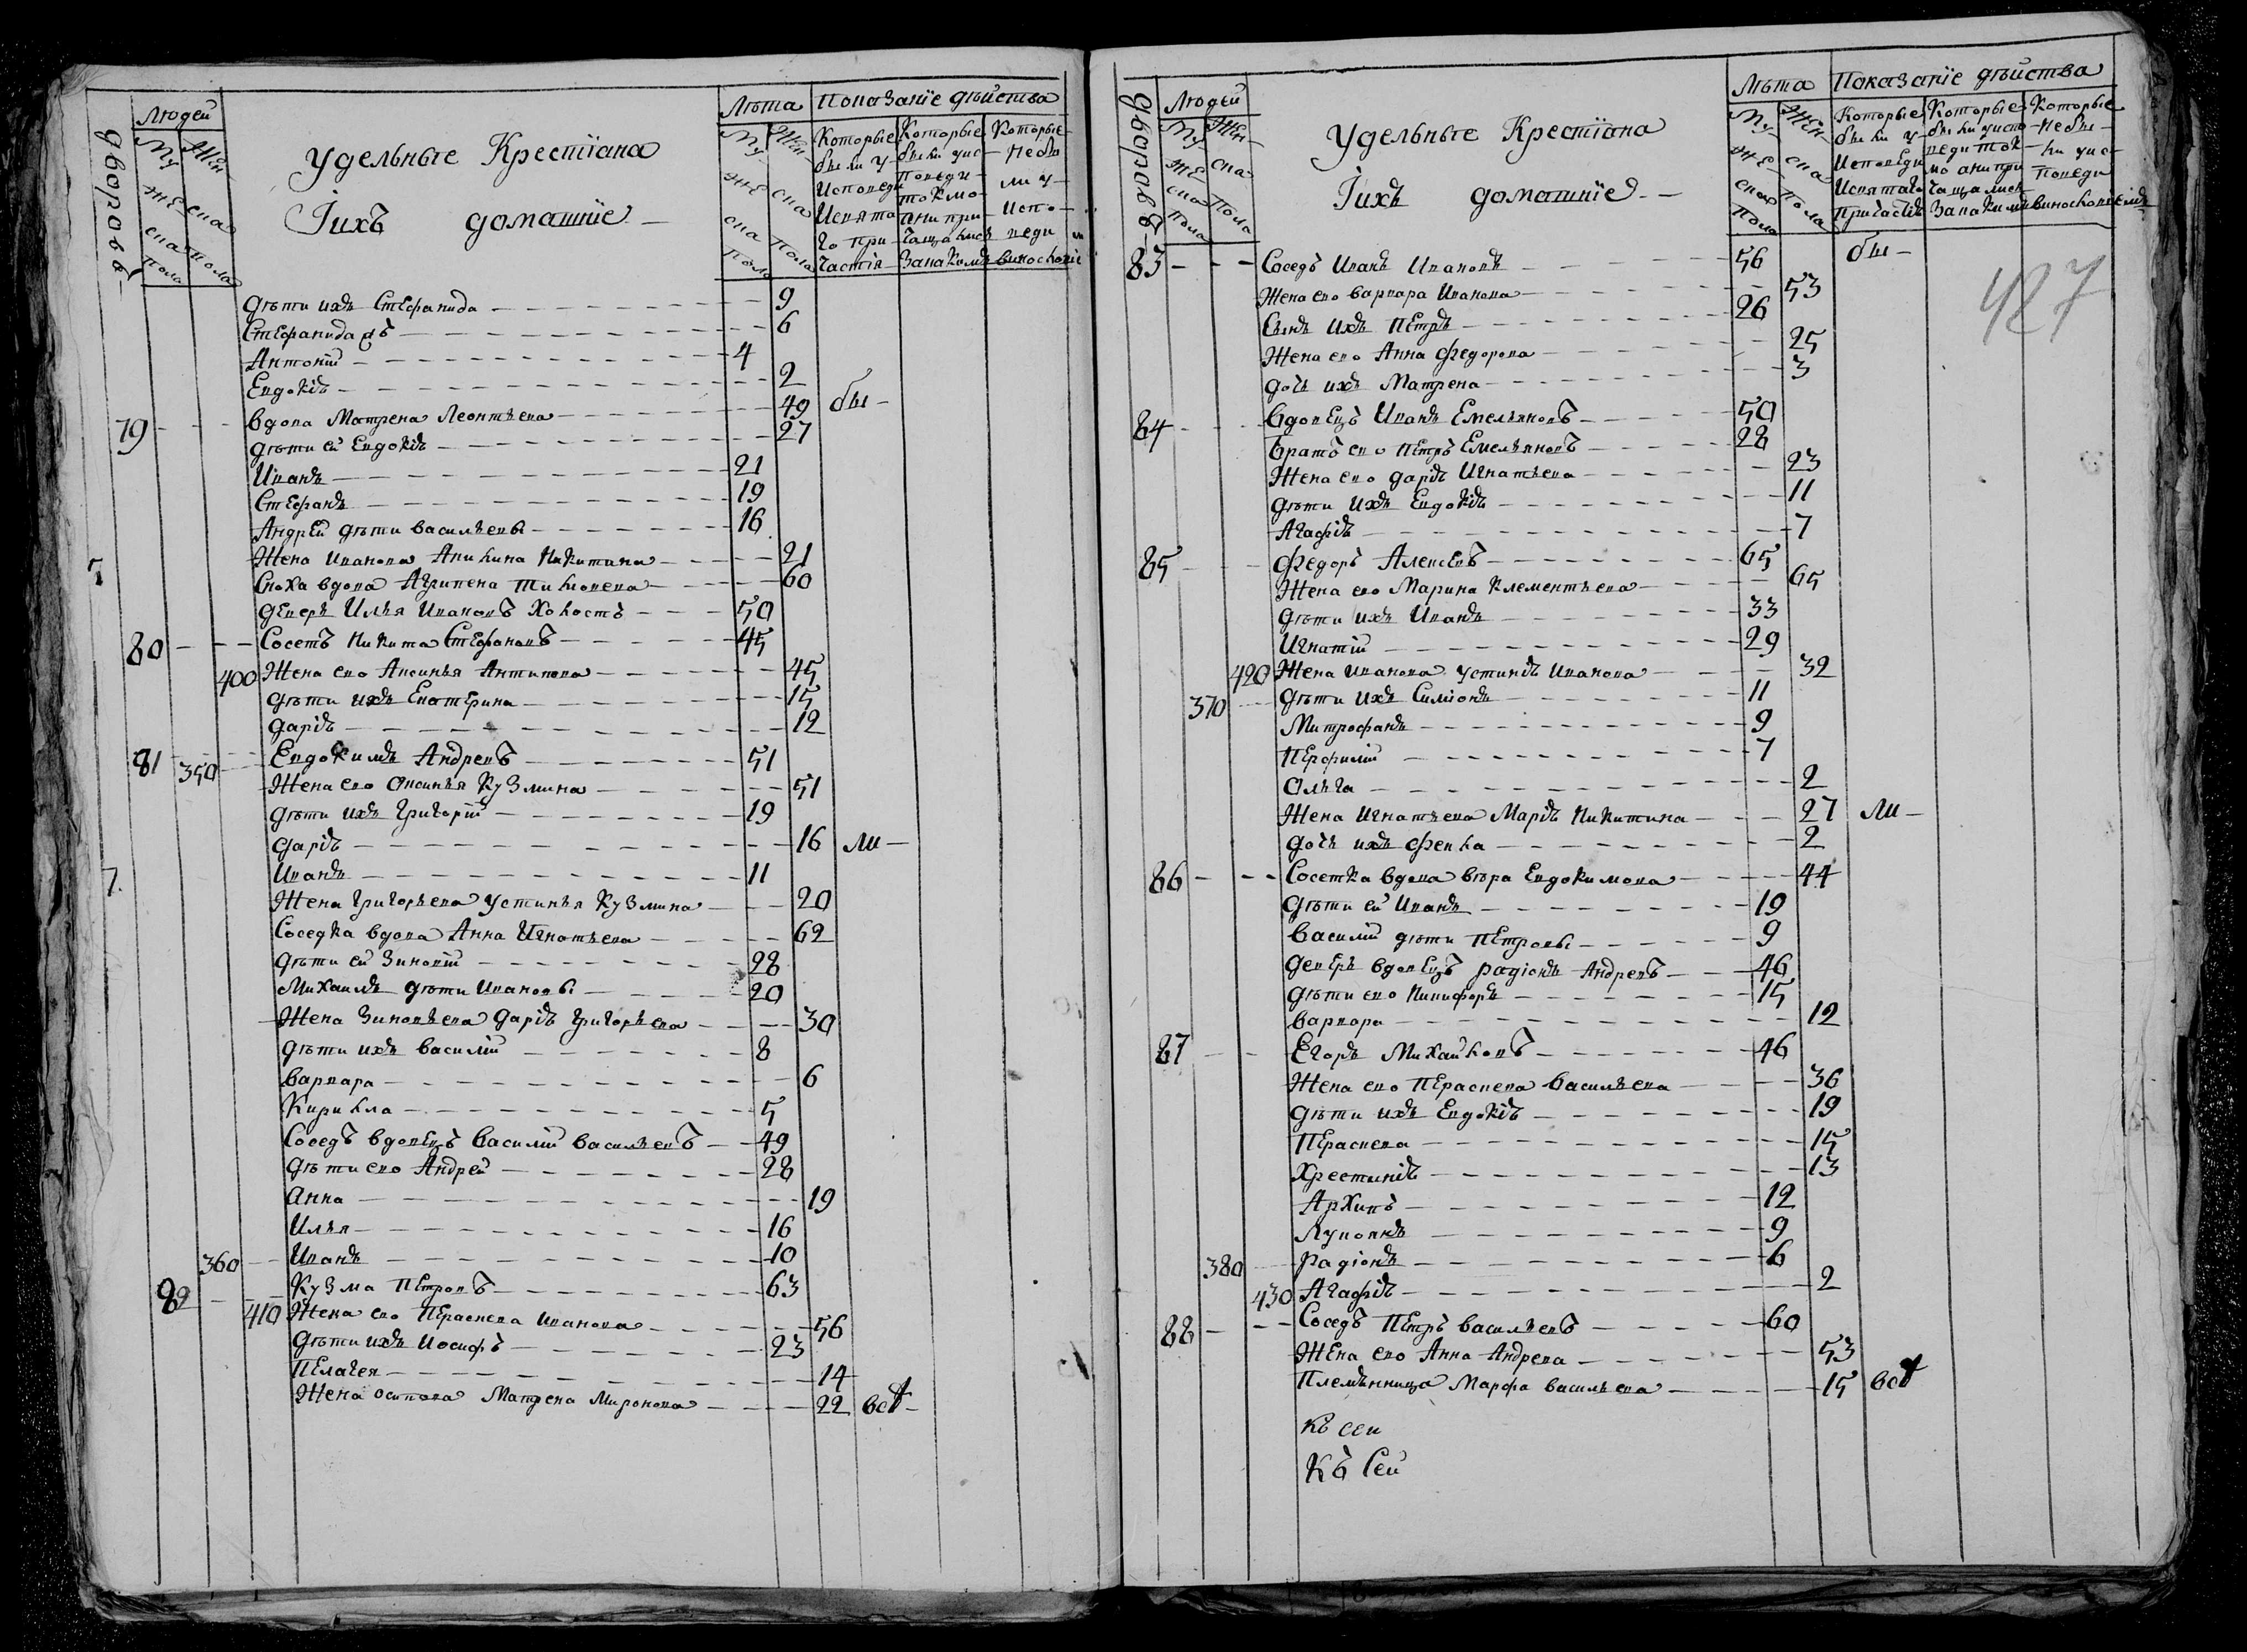 дворовъ
Людей
Му
жес
ска
пола
Жен
ска
пола
Удельные Крестiана
Iихъ домашнiе
Лѣта
Му
жес
ска
пола
Жен
ска
пола
Показанiе дѣйства
Которые были у Исповеди и святаго причастiя
Которые были у исповеди токмо а не причащались
Которые не были у исповеди
дѣти ихъ Стефанида 9
Стефанида дѣ 6
Антонiй 4
Евдокiѣ 2
79 вдова Матрена Леонтьева 49 бы-
дѣти ей Евдокiѣ 27
Иванъ 21
Стефанъ 19
Андрей дѣти васильевы 16
Жена иванова Акилина Никитина 21
Сноха вдова Агрипена Тихонова 60
деверь Илья Ивановъ Холостъ 50
80 Сосетъ Никита Стефановъ 45
400 Жена ево Аксинья Антипова 45
дѣти ихъ Екатерина 15
дарiѣ 12
81 350 Евдокимъ Андревъ 51
Жена ево Оксинья Кузмина 51
дѣти ихъ Григорiй 19
дарiѣ 16 ли-
Иванъ 11
Жена Григорьева Устинья Кузмина 20
Соседка вдова Анна Игнатьева 62
дѣти ей Зиновiй 28
Михаилъ дѣти Ивановы 20
Жена Зиновьева дарiѣ Григорьева 30
дѣти ихъ василiй 8
варвара 6
Кирилла 5
Соседъ вдовецъ Василiй васильевъ 49
дѣти ево Андрей 28
Анна 19
Илья 16
360 Иванъ 10
82 Кузма Петровъ 63
410 Жена ево Пераскева иванова 56
дѣти ихъ Иосифъ 23
Пелагея 14
Жена осипова Матрена Миронова 22 всѣ-
дворовъ
Людей
Му
жес
ска
пола
Жен
ска
пола
Удельные Крестiана
Iихъ домашнiе
Лѣта
Му
жес
ска
пола
Жен
ска
пола
Показанiе дѣйства
Которые были у Исповеди и святаго причастiѣ
Которые были у исповеди токмо а не причащались
Которые не были у исповеди
427
83 Соседъ Иванъ Ивановъ 56 бы-
Жена ево варвара Иванова 53
Сынъ ихъ Петръ 26
Жена ево Анна Федорова 25
дочь ихъ Матрена 3
84 Вдовецъ Иванъ Емельяновъ 50
Братъ ево Петръ Емельяновъ 28
Жена ево дарiѣ Игнатьева 23
дѣти ихъ Евдокiѣ 11
Агафiѣ 7
85 Федоръ Алексевъ 65
Жена ево Марина Клементьева 65
дѣти ихъ Иванъ 33
Игнатiй 29
420 Жена иванова устинiѣ Иванова 32
370 дѣти ихъ Симiонъ 11
Митрофанъ 9
Перфилiй 7
Ольга 2
Жена игнатьева Марiѣ Никитина 27 ли-
дочь ихъ Фекла 2
86 Сосетка вдова вѣра Евдокимова 44
дѣти ей Иванъ 19
василiй дѣти Петровы 9
деверь вдовецъ радiонъ Андревъ 46
дѣти ево Никифоръ 15
варвара 12
87 Егоръ Михайловъ 46
Жена ево Пераскева Васильева 36
дѣти ихъ Евдокiѣ 19
Пераскева 15
Хрестинiѣ 13
Архипъ 12
Лупонъ 9
380 Радiонъ 6
430 Агафiѣ 2
88 Соседъ Петръ васильевъ 60
Жена ево Анна Андрева 53
Племѣнница Марфа васильева 15 всѣ
къ сеи
Къ Сеи